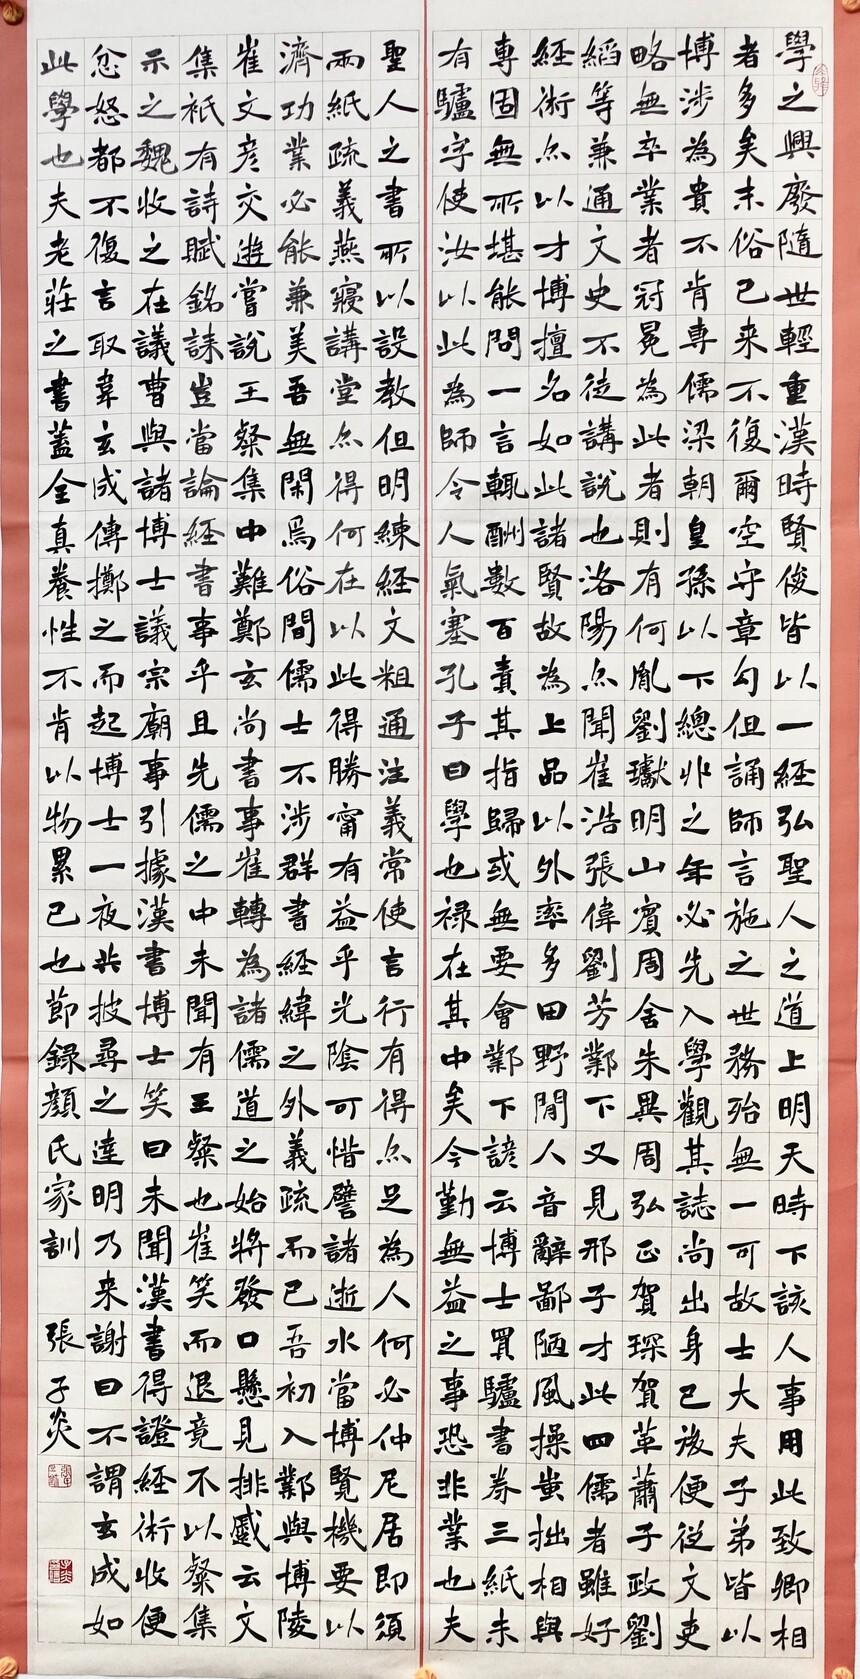 學之興廢隨世輕重漢時賢俊皆以一經弘聖人之道上明天時下該人事用此致卿相
者多矣末俗已来不復爾空守章句但誦師言施之世務殆無一可故士大夫子弟皆以
博涉為貴不肯專儒梁朝皇孫以下總丱之年必先入學觀其誌尚出身已後便從文吏
略無卒業者冠冕為此者則有何胤劉瓛明山賓周舍朱異周弘正賀琛賀革蕭子政劉
縚等兼通文史不徒講說也洛陽亦聞崔浩張偉劉芳鄴下又見邢子才此四儒者雖好
經術亦以才博擅名如此諸賢故為上品以外率多田野閒人音辭鄙陋風操蚩拙相與
專固無所堪能問一言輒酬數百責其指歸或無要會鄴下諺云博士買驢書券三紙未
有驢字使汝以此為師令人氣塞孔子曰學也禄在其中矣今勤無益之事恐非業也夫
聖人之書所以設教但明練經文粗通注義常使言行有得亦足為人何必仲尼居即須
兩紙疏義燕寢講堂亦得何在以此得勝甯有益乎光陰可惜譬諸逝水當博覽機要以
濟功業必能兼美吾無閑焉俗間儒士不涉群書經緯之外義疏而已吾初入鄴與博陵
崔文彦交遊嘗說王粲集中難鄭玄尚書事崔轉為諸儒道之始將發口懸見排蹙云文
集祇有詩賦銘誄豈當論經書事乎且先儒之中未聞有王粲也崔笑而退竟不以粲集
示之魏收之在議曹與諸博士議宗廟事引據漢書博士笑曰未聞漢書得證經術收便
忿怒都不復言取韋玄成傳擲之而起博士一夜共披尋之達明乃来謝曰不謂玄成如
此學也夫老莊之書蓋全真養性不肯以物累己也節録顏氏家訓 張子炎